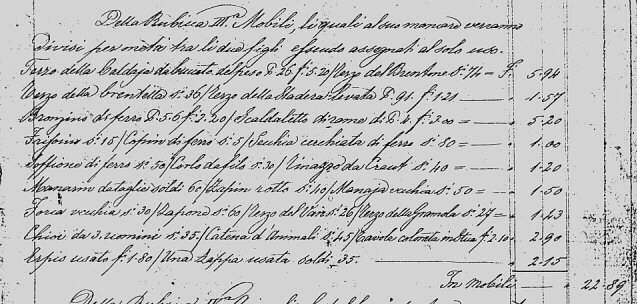 Della Rubrica III.ª Mobili, li quali al suo mancare verranno
divisi per metà tra li due figli essendo assegnati al solo uso.
Terzo della Caldaja da bucato del peso P. 26. f. 5.20/ Terzo del Brentone s. 74 = F. 5.94
Terzo della Brentella s. 36/ Terzo della Stadera levata P. 91. f. 1.21 — " 1.57
Bronzino di ferro P. 5.6 f. 2.20/ Scaldaletto di rame di P. 4. f. 3.00 — " 5.20
s. 15/ Copin di ferro s. 5/ Secchia cerchiata di ferro s. 80 — " 1.00
Soffione di ferro s. 50/ Corlo da filo s. 30/ Vinazzo da Craut s. 40 — " 1.20
Manarin da taglio soldi 60/ Zapin rotto s. 40/ Manaja vecchia s. 50 = — " 1.50
Forca vecchia s. 30/ Zapone s. 60/ Terzo del s. 26/ Terzo della Gramola s. 27 = " 1.43
Chioi da 3. s. 35./ Catena d'Animali s. 45/ Tavola f. 2.10 " 2.90
Erpis usato f. 1.80/ Una Zappa usata soldi 35. — " 2.15
In Mobili — " 22.89
Della